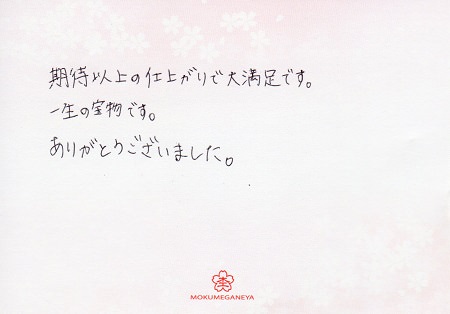 期待以上の仕上がりで大満足です。
一生の宝物です。
ありがとうございました。
MOKUMEGANEYA